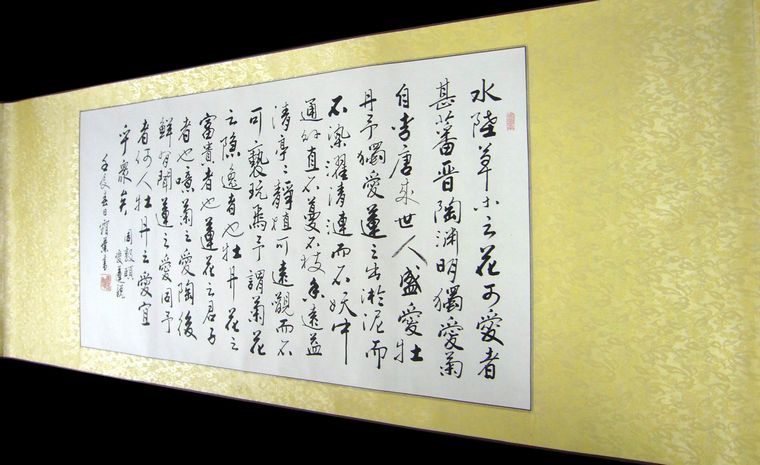 水陸草木之花可愛者
甚蕃晋陶渊明獨愛菊
自李唐来世人盛愛牡
丹予獨愛蓮之出淤泥而
不染濯清漣而不妖中
通外直不蔓不枝香遠益
清亭〻静植可遠觀而不
可褻玩焉予謂菊花
之隐逸者也牡丹花之
富貴者也蓮花之君子
者也噫菊之愛陶後
鮮有聞蓮之愛同予
者何人牡丹之愛宜
乎眾矣
周敦頤
愛蓮説
壬辰春日
書